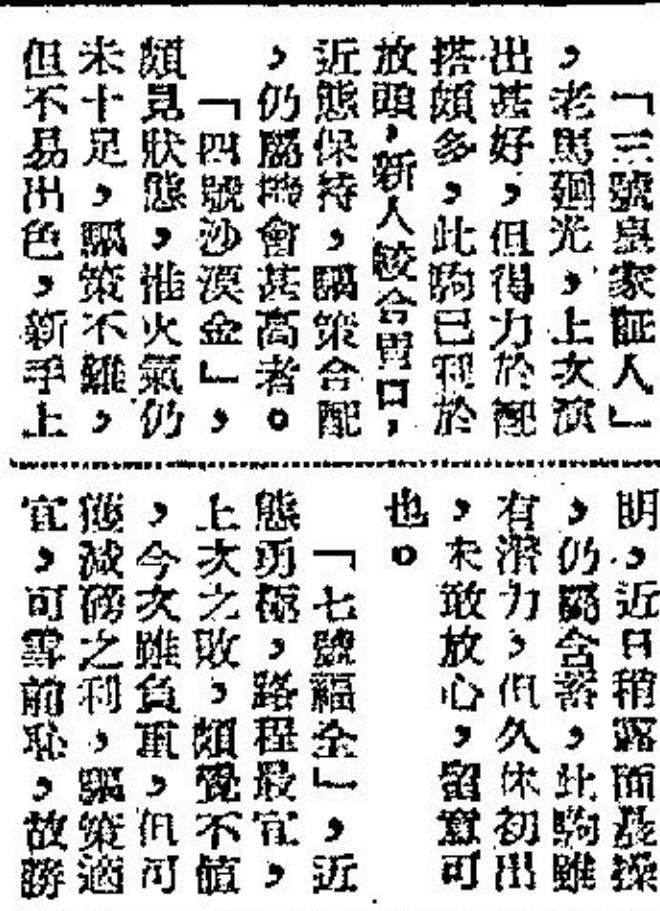 「三號皇家証人」
，老馬廻光，上次演
出甚好，但得力於配
搭頗多，此駒已利於
放頭，新人較合胃口，
近態保持，騸策合配
，仍屬機會甚高者。
「四號沙漠金」，
頗見狀態，惟火氣仍
未十足，騸策不離，
但不易出色，新手上
明，近日稍露面晨操
，仍屬含蓄，此駒雖
有潛力，但久休初出
，未敢放心，留意可
也。
「七號福全」，近
態勇極，路程最宜，
上次之敗，頗覺不值
，今次雖負重，但可
獲減磅之利，騸策適
宜，可雪前恥，故勝